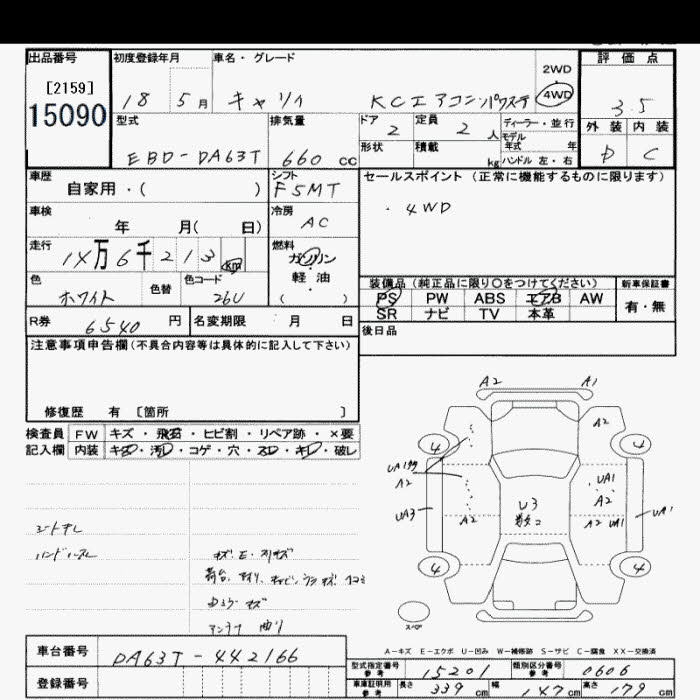 出品番号 初度登録年月 車名・グレード 評価点
[2159] 2WD
15090 18 5月 キャリィ KCエアコン・パワステ 4WD 3.5
型式 排気量 ドア 定員 ディーラー・並行 外装 内装
EBD-DA63T 660cc 2 2人 モデル年式 年
形状 積載 kg ハンドル 左・右 D C
車歴 シフト セールスポイント(正常に機能するものに限ります)
自家用・( ) F5MT
・4WD
車検 冷房
年 月( 日) AC
走行 燃料
1×万6千213km ガソリン
軽油
( )
色 色替 色コード
ホワイト 26U
装備品(純正品に限り○をつけてください) 新車保証書
PS PW ABS エアB AW 有・無
SR ナビ TV 本革
R券 6540円 名変期限 月 日
後日品
注意事項申告欄(不具合内容等は具体的に記入して下さい)
修復歴 有 [箇所 ]
検査員 FW キズ・飛石・ヒビ割・リペア跡・×要
記入欄 内装 キズ・汚れ・コゲ・穴・スレ・キレ・破し
A2 A1
A2
4 4
A2
UA1
A2
U3
UA3 A2 A2 UA1 UA1
4 4
スペア
シートキレ
ハンドルスレ
アンテナ 曲り
A-キズ E-エクボ U-凹み W-補修跡 S-サビ C-腐食 XX-交換済
車台番号 DA63T-442166
登録番号
型式指定番号 参考 15201 類別区分番号 参考 0606
車庫証明用 参考 長さ 339cm 幅 147cm 高さ 179cm